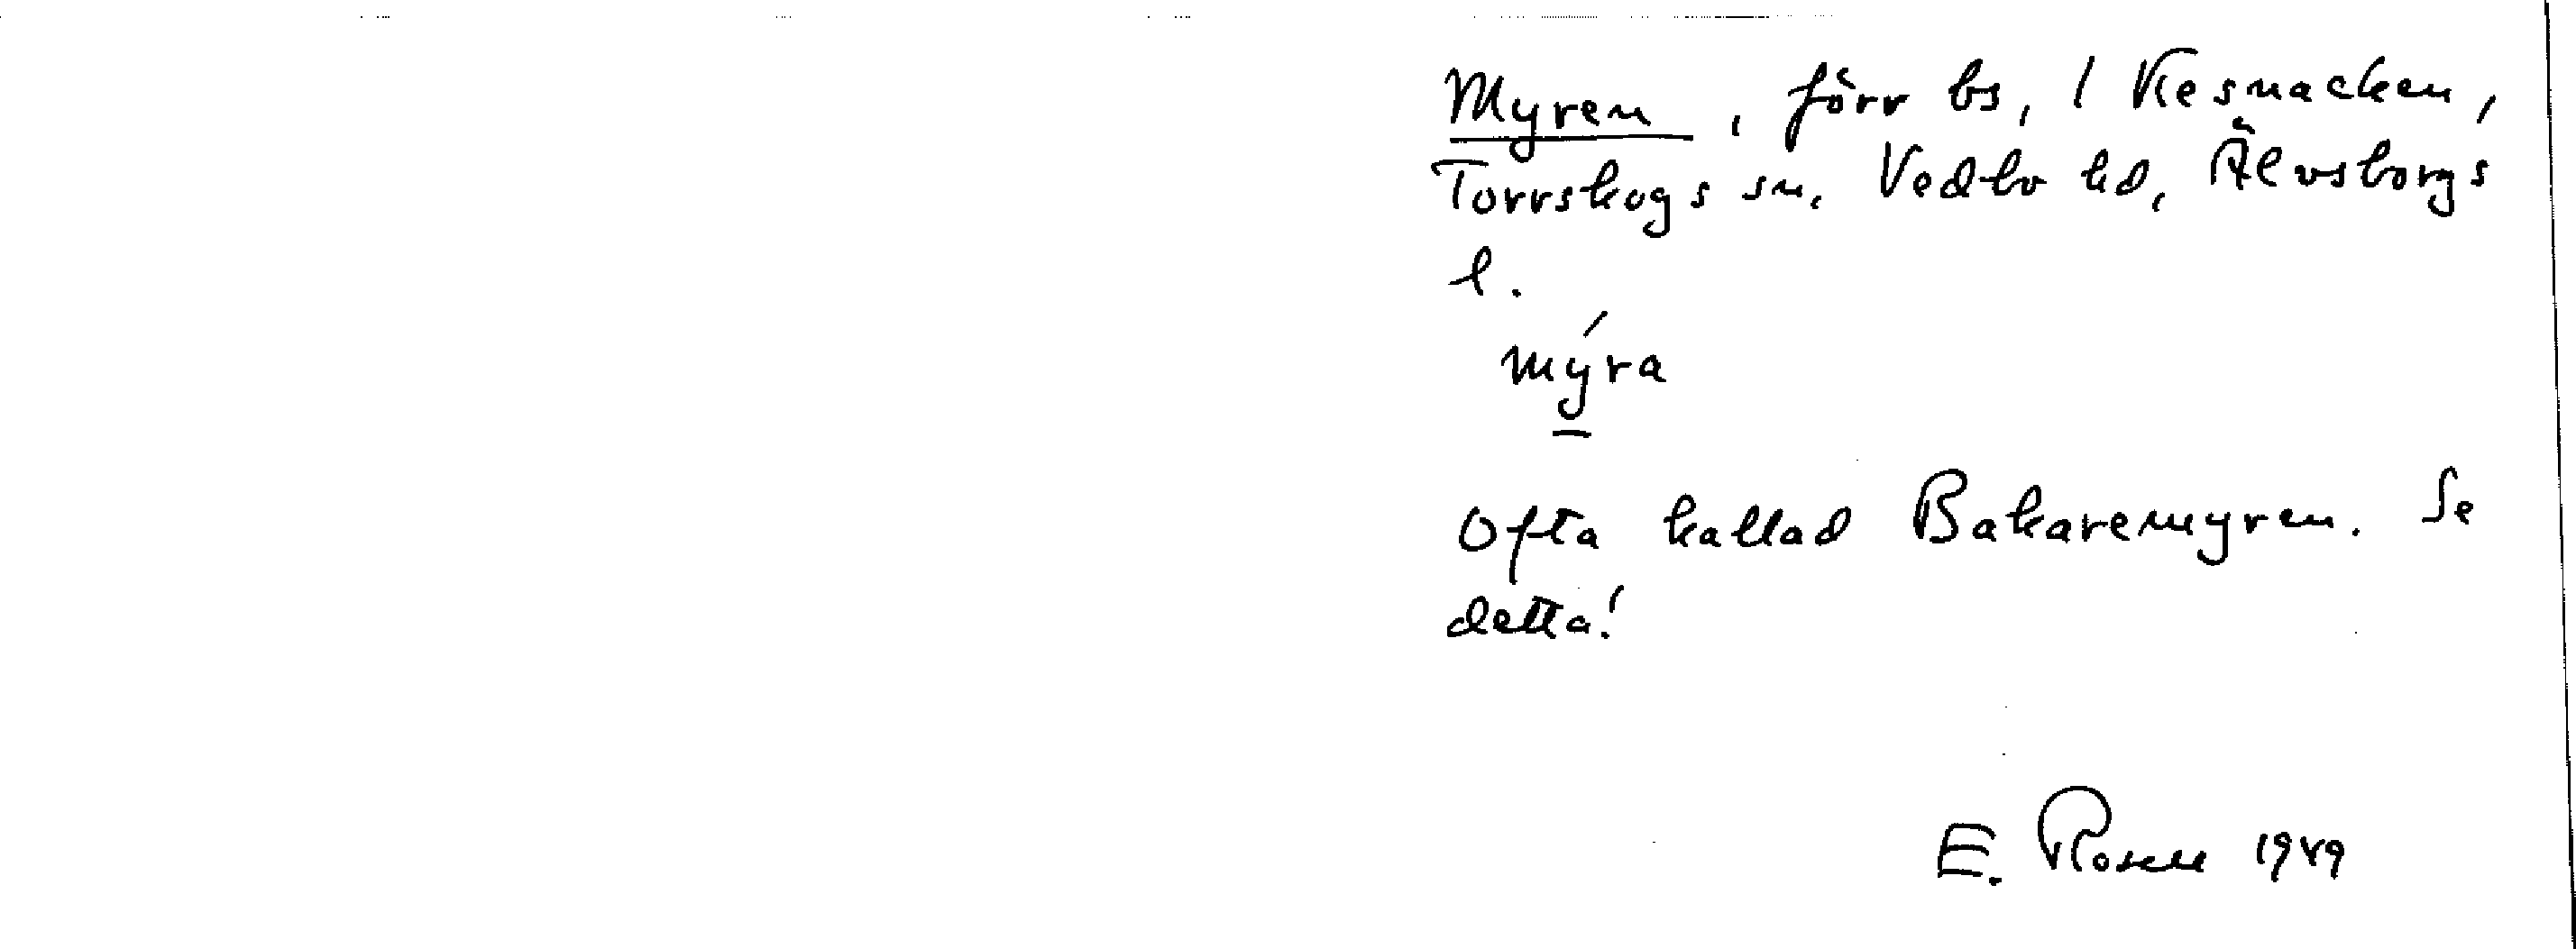 Myren, förr bs, 1 Kesnacken,
Torrskogs sn, Vedbo hd, Älvsborgs
l.
mýra
Ofta kallad Bakaremyren. Se
detta!
E. Rosell 1949